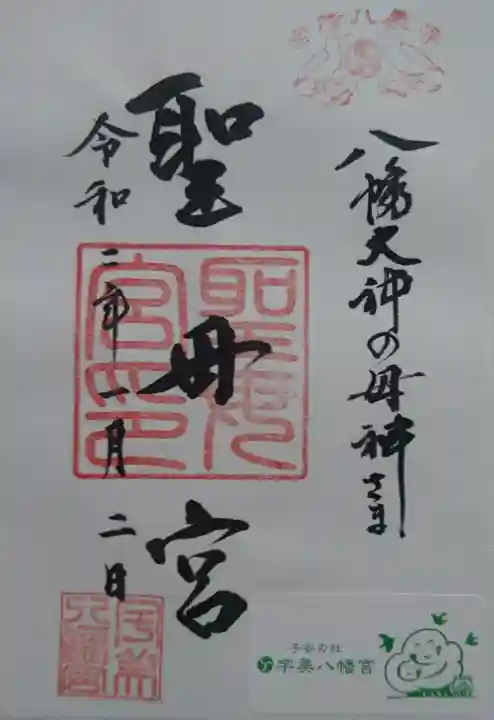 宇美八幡宮
八幡大神の母神さま
聖母宮
聖母宮印
令和二年一月二日
宇美八幡宮
子安の杜
宇美八幡宮